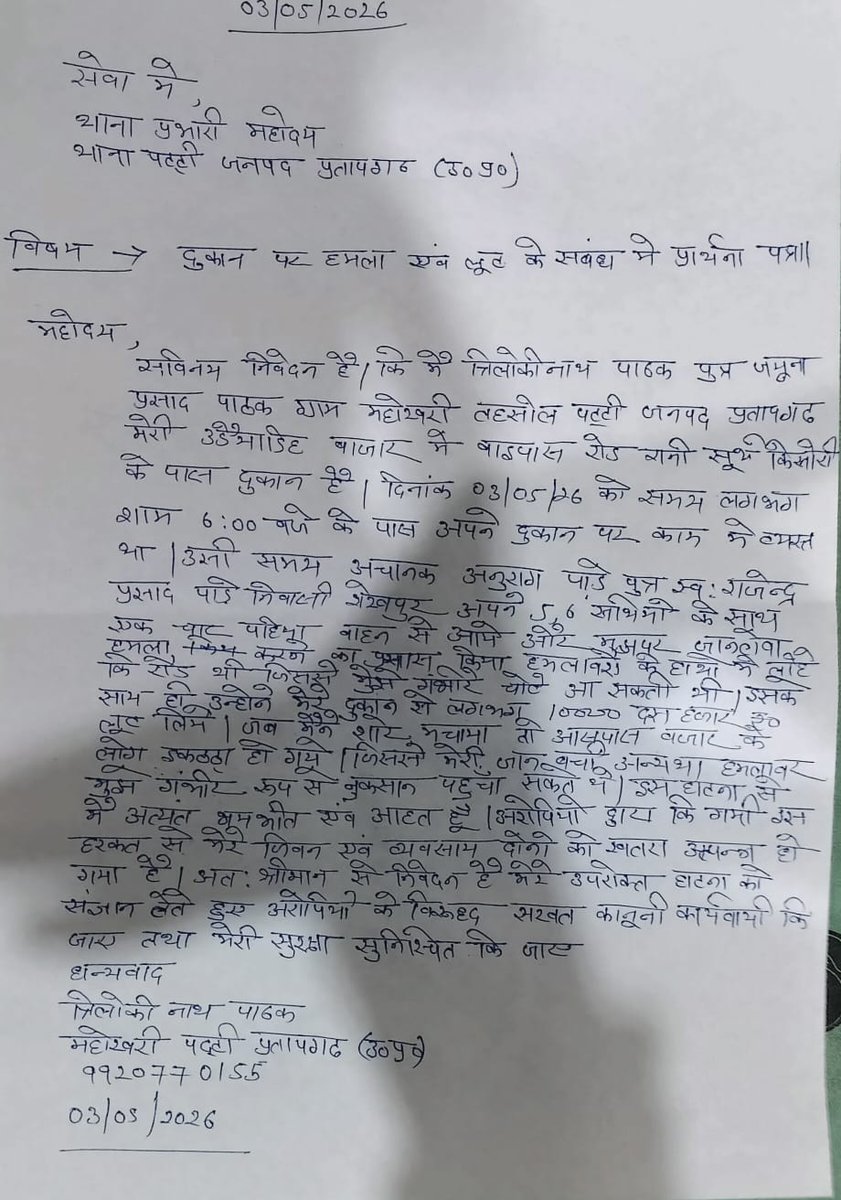 03/05/2026
सेवा मे,
थाना प्रभारी महोदय
थाना पट्टी जनपद प्रतापगढ (उ०प्र०)
विषय → दुकान पर हमला एवं लूट के सबंध मे प्रार्थना पत्र॥
महोदय,
सविनय निवेदन है। कि मै त्रिलोकीनाथ पाठक पुत्र जमूना
प्रसाद पाठक ग्राम महोखरी तहसील पट्टी जनपद प्रतापगढ
मेरी उडैयाडिह बाजार मे बाइपास रोड रानी सूर्य किसोरी
के पास दुकान है। दिनांक 03/05/26 को समय लगभग
शाम 6:00 बजे के पास अपने दुकान पर काम मे व्यस्त
था। उसी समय अचानक अनुराग पांडे पुत्र स्व: राजेन्द्र
प्रसाद पांडे निवासी शेखपुर अपने 5,6 साथियो के साथ
एक चार पहिया वाहन से आये और मुझपर जानलेवा
हमला करने का प्रयास किया हमलावरो के हाथो मे लोहे
कि रॉड थी जिससे मुझे गंभीर चोटे आ सकती थी। इसके
साथ ही उन्होने मेरे दुकान से लगभग 10000 दस हजार रु०
लूट लिये। जब मैने शोर मचाया तो आसपास बजार के
लोग इकठठा हो गये। जिससे मेरी जान बची अन्यथा हमलावर
मुझे गंभीर रूप से नुकसान पहुचा सकते थे। इस घटना से
मे अत्यंत भयभीत एवं आहत हूँ। अरोपियो द्वारा कि गयी इस
हरकत से मेरे जिवन एवं व्यवसाय दोनो को खतरा उत्पन्न हो
गया है। अत: श्रीमान से निवेदन है मेरे उपरोक्त घटना को
संज्ञान लेते हुए अरोपियो के विरूद्ध सखत कानूनी कार्यवायी कि
जाए तथा मेरी सुरक्षा सुनिस्चित कि जाए
धन्यवाद
त्रिलोकी नाथ पाठक
महोखरी पट्टी प्रतापगढ (उ०प्र०)
9920770155
03/05/2026